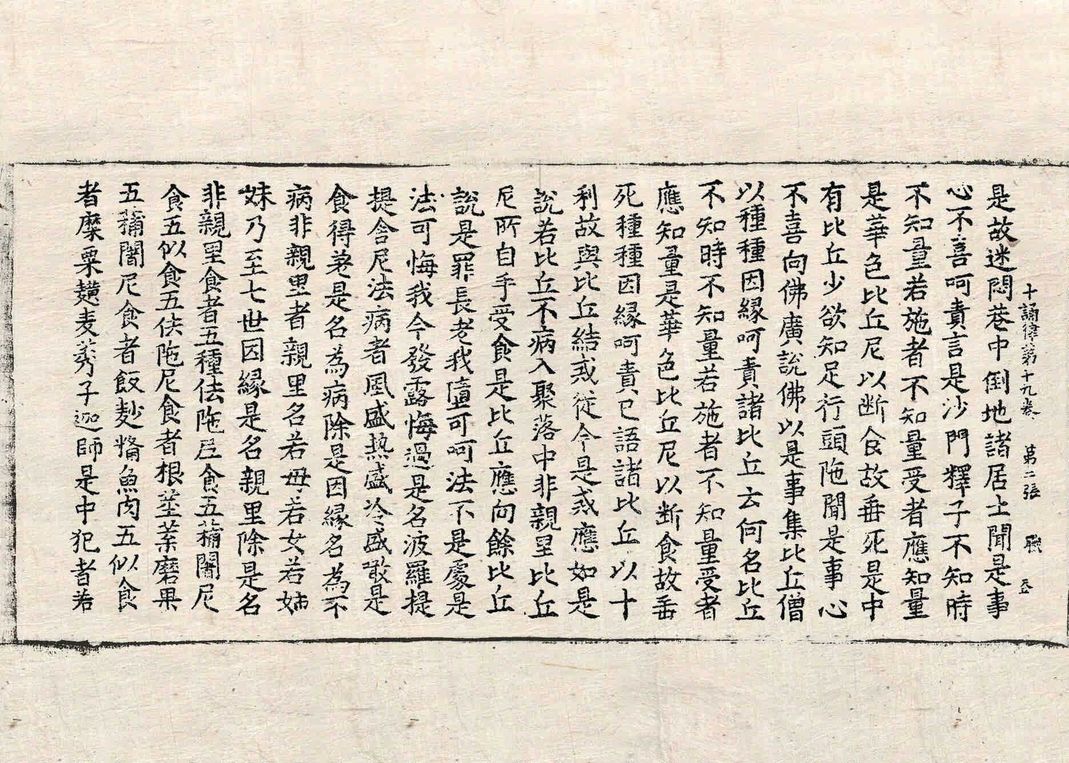 是故迷悶巷中倒地諸居士聞是事
十誦律第十九卷 第二張 職 五
心不喜呵責言是沙門釋子不知時
不知量若施者不知量受者應知量
是華色比丘尼以断食故垂死是中
有比丘少欲知足行頭陁聞是事心
不喜向佛廣說佛以是事集比丘僧
以種種因緣呵責諸比丘云何名比丘
不知時不知量若施者不知量受者
應知量是華色比丘尼以断食故垂
死種種因緣呵責已語諸比丘以十
利故與比丘結戒從今是戒應如是
說若比丘不病入聚落中非親里比丘
尼所自手受食是比丘應向餘比丘
說是罪長老我墮可呵法不是處是
法可悔我今發露悔過是名波羅提
提舍尼法病者風盛熱盛冷盛噉是
食得差是名為病除是因緣名為不
病非親里者親里名若母若女若姉
妹乃至七世因緣是名親里除是名
非親里食者五種佉陁尼食五蒱闍尼
食五似食五佉陁尼食者根莖葉磨果
五蒱闍尼食者飯麨糒魚肉五似食
者糜粟䵃麦莠子迦師是中犯者若